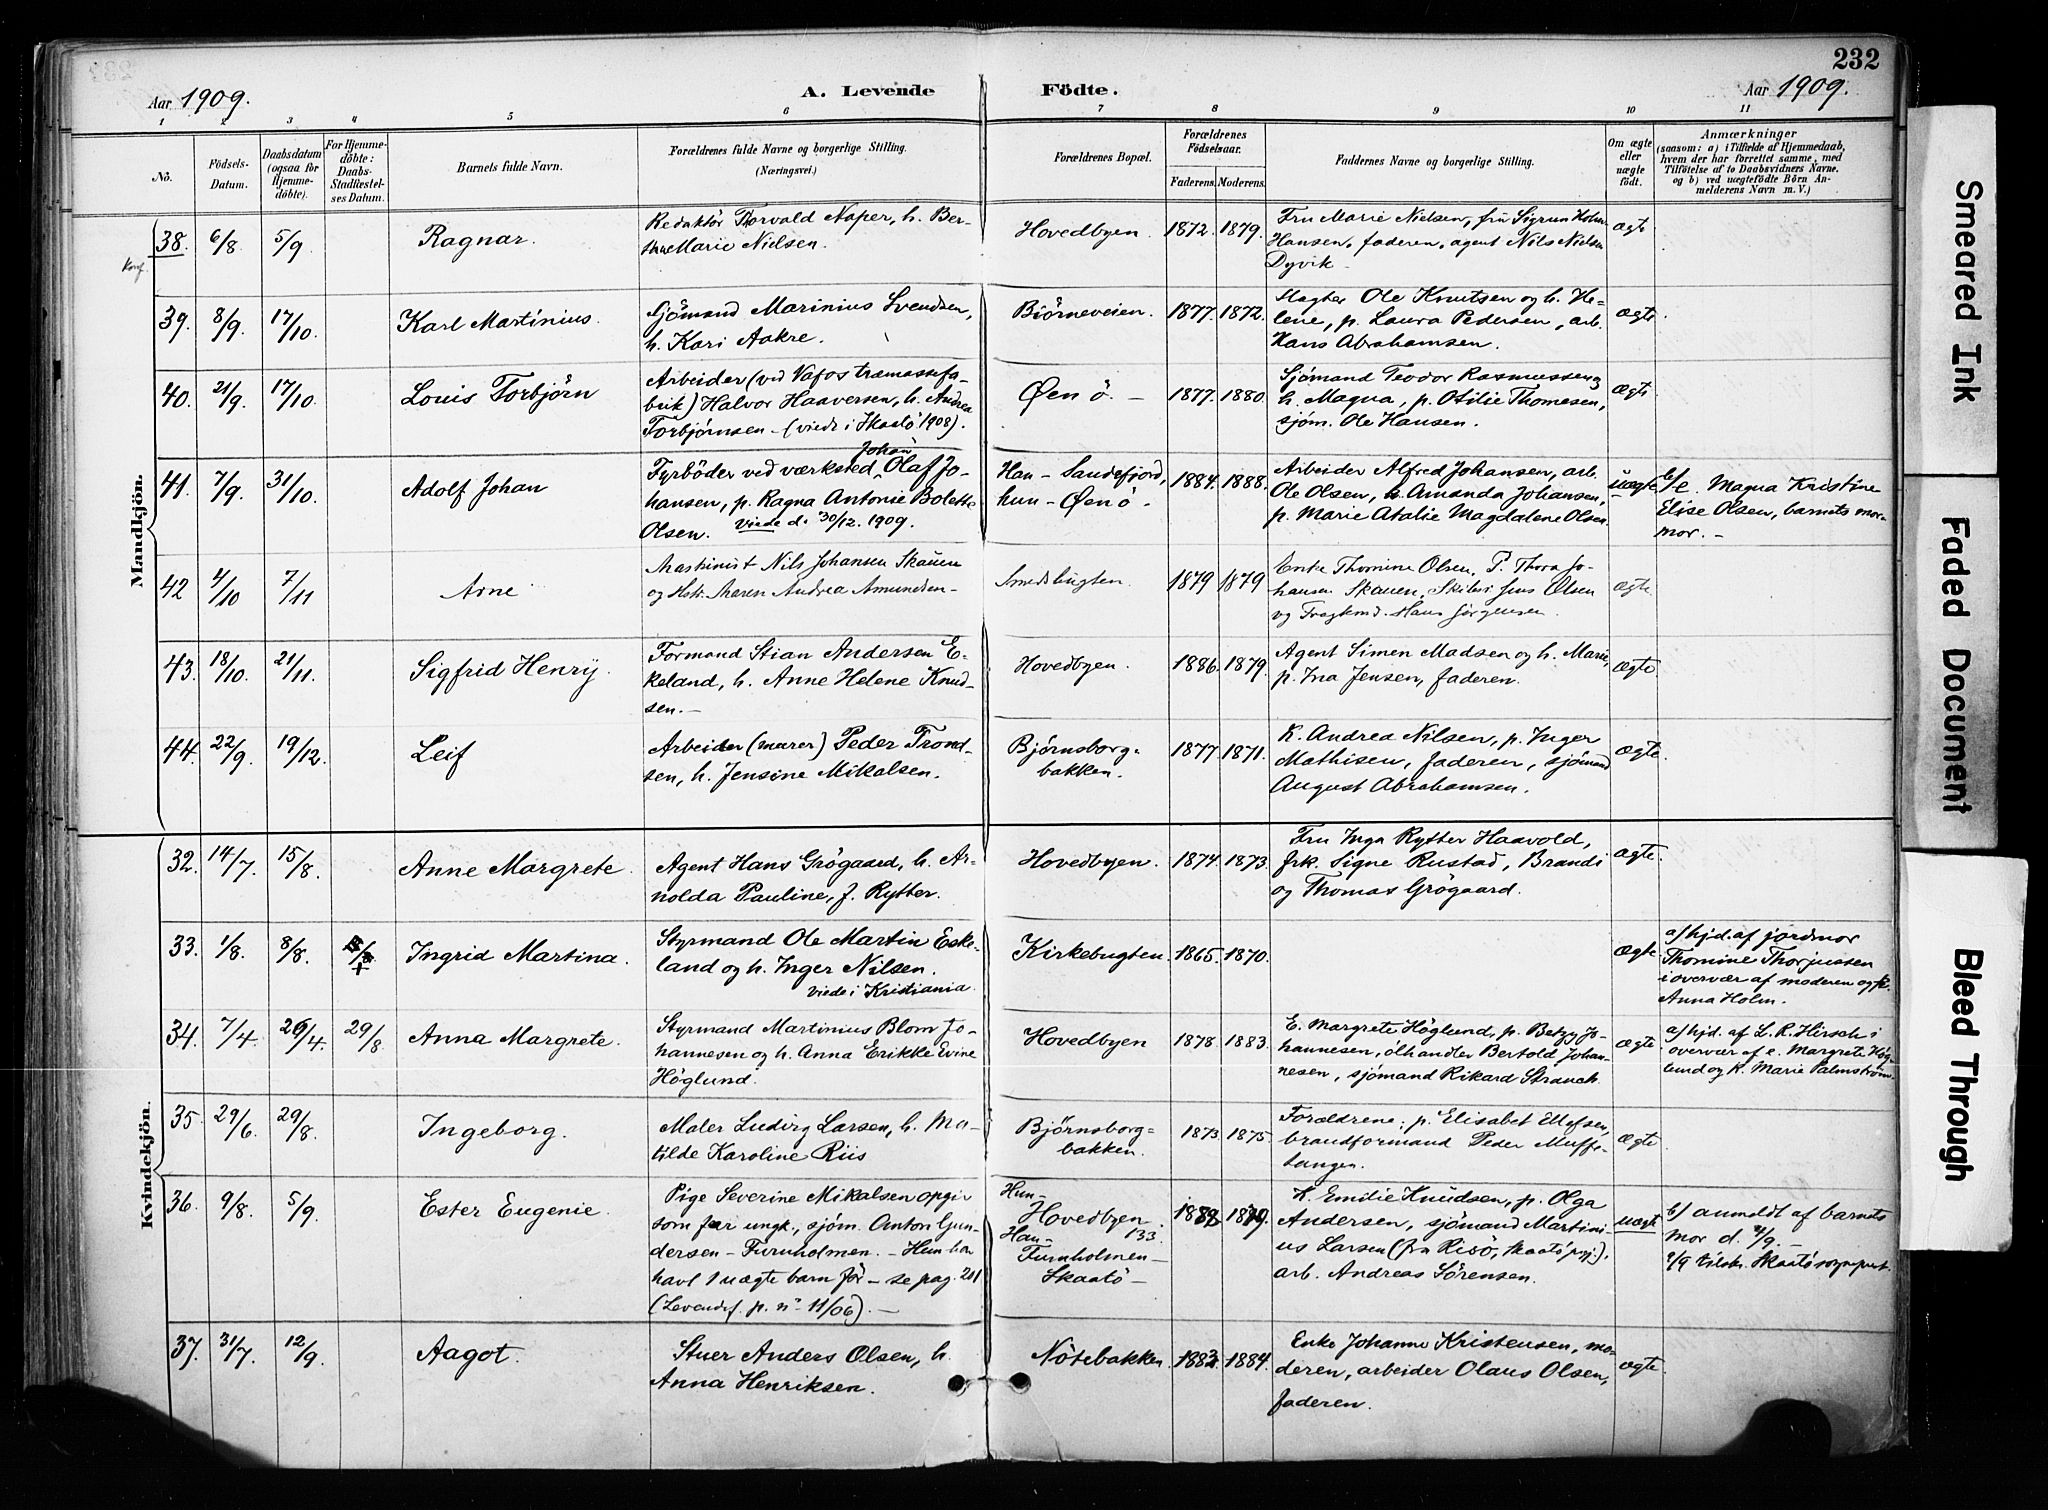 232
Aar 1909.
A. Levende Födte.
Aar 1909.
1 2 3 4 5 6 7 8 9 10 11
No.
Födsels-Datum.
Daabsdatum (ogsaa för Hjemme-döbte).
For Hjemme-döbte: Daabs-Stadfæstel-ses Datum.
Barnets fulde Navn.
Forældrenes fulde Navne og borgerlige Stilling.
(Næringsvei.)
Forældrenes Bopæl.
Forældrenes Födselsaar.
Faderens. Moderens.
Faddernes Navne og borgerlige Stilling.
Om ægte eller uægte födt.
Anmærkninger
(saasom: a) i Tilfælde af Hjemmedaab,
hvem der har forrettet samme, med
Tilföielse af to Daabsvidners Navne.
og b) ved uægtefödte Börn An-
melderens Navn m. V.)
Mandkjön.
38. 6/8 5/9 Ragnar.
Konf.
Redaktör Torvald Naper, h. Ber-
Marie Nielsen.
Hovedbyen. 1872. 1879.
Fru Marie Nielsen, fru Sigrun Holm
Hansen, faderen, agent Nils Nielsen
Dyvik
ægte
39. 8/9. 17/10. Karl Martinius.
Sjömand Marinius Svendsen,
h. Kari Aakre.
Björneveien. 1877. 1872.
Slagter Ole Knutsen og h. He-
lene, p. Laura Pedersen, arb.
Hans Abrahamsen.
ægte.
40. 21/9. 17/10. Louis Torbjörn
Arbeider (ved Vafos træmassefa-
brik) Halvor Haaversen, h. Andrea
Torbjörnsen - (viede i Skaatö 1908).
Öen ö. - 1877. 1880.
Sjömand Teodor Rasmussen og
h. Magna, p. Otilie Thomesen,
sjöm. Ole Hansen.
ægte.
41. 7/9. 31/10. Adolf Johan
Johan
Fyrböder ved værksted, Olaf Jo-
hansen, p. Ragna Antonie Bolette
Olsen. Viede d. 30/12. 1909.
Han - Sandefjord,
hun - Öen ö.
1884. 1888.
Arbeider Alfred Johansen, arb.
Ole Olsen, h. Amanda Johansen,
p. Marie Atalie Magdalene Olsen.
uægte
b/ e. Magna Kristine
Elise Olsen, barnets mor-
mor. -
42 4/10 7/11 Arne
Maskinist Nils Johansen Skauen
og Hstr. Maren Andrea Amundsen
Smedsbugten. 1879 1879
Enke Thomine Olsen, P. Thora Jo-
hansen Skauen, Skibsr Jens Olsen
og Fragtmd. Hans Jörgensen.
ægte.
43. 18/10. 21/11. Sigfrid Henry.
Formand Stian Andersen E-
keland, h. Anne Helene Knud-
sen. -
Hovedbyen. 1886. 1879.
Agent Simen Madsen og h. Marie,
p. Ina Jensen, faderen.
ægte.
44. 22/9. 19/12. Leif
Arbeider (murer) Peder Trond-
sen, h. Jensine Mikalsen.
Björnsborg-
bakken.
1877. 1871.
K. Andrea Nilsen, p. Inger
Mathisen, faderen, sjömand
August Abrahamsen.
ægte.
Kvindekjön.
32. 14/7. 15/8. Anne Margrete.
Agent Hans Grögaard, h. Ar-
nolda Pauline, f. Rytter.
Hovedbyen. 1874. 1873.
Fru Inga Rytter Haavold,
frk. Signe Rustad, Brandi
og Thomas Grögaard.
ægte.
33. 1/8. 8/8. Ingrid Martina.
Styrmand Ole Martin Eske-
land og h. Inger Nilsen.
Viede i Kristiania.
Kirkebugten. 1865. 1870.
ægte
a/ hjd. af jordmor
Thomine Thorjussen
i overvær af moderen og k.
Anna Holm.
34. 7/4. 26/4. 29/8 Anna Margrete.
Styrmand Martinius Blom Jo-
hannesen og h. Anna Erikke Evine
Höglund.
Hovedbyen 1878. 1883.
E. Margrete Höglund, p. Betzy Jo-
hannesen, ölhandler Bertold Johan-
nesen, sjömand Rikard Strauch.
ægte
a/ hjd. af L. R. Hirsch i
overvær af e. Margrete Hög-
lund og K. Marie Palmström.
35. 29/6. 29/8. Ingeborg.
Maler Ludvig Larsen, h. Ma-
tilde Karoline Riis
Björnsborg-
bakken.
1873. 1875.
Forældrene; p. Elisabet Ellefsen,
brandformand Peder Muffe-
tangen.
ægte
36. 9/8. 5/9. Ester Eugenie.
Pige Severine Mikalsen opgir
som far ungk., sjöm. Anton Gun-
dersen - Furuholmen. - Hun har
havt 1 uægte barn för - se pag. 201
(Levendef. p. nº 11/06). -
Hun -
Hovedbyen.
Han - 133.
Furuholmen -
Skaatö -
K. Emilie Knudsen, p. Olga
Andersen, sjömand Martini-
us Larsen (fra Risö, Skaatö prgj.).
arb. Andreas Sörensen.
uægte
b/ anmeldt af barnets
mor d. -
tilskr. Skaatö sogneprest.
37. 31/7. 12/9. Aagot.
Stuer Anders Olsen, h.
Anna Henriksen.
Nötebakken 1884.
Enke Johanne Kristensen, mo-
deren, arbeider Olaus Olsen,
faderen.
ægte.
Smeared Ink
Faded Document
Bleed Through